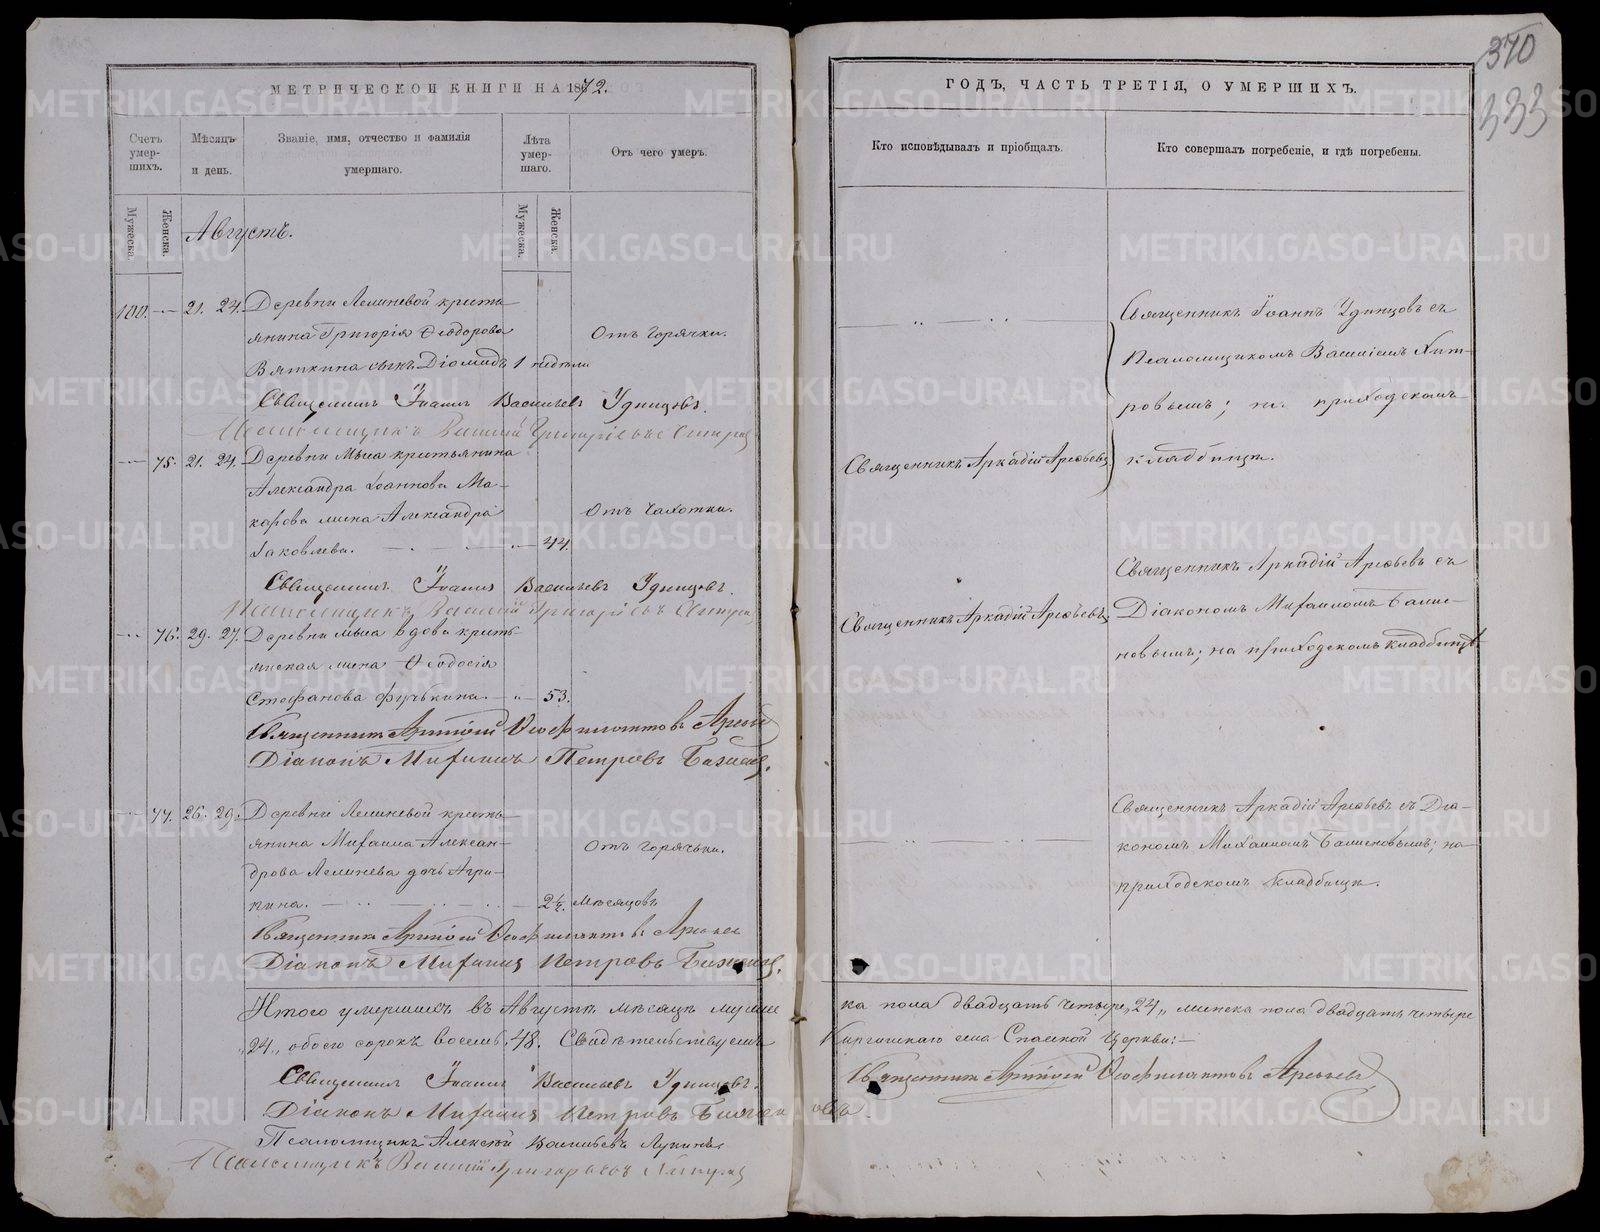 МЕТРИЧЕСКОЙ КНИГИ НА 1872.
Счетъ умер-шихъ.
Мѣсяцъ и день.
Званіе, имя, отчество и фамилія умершаго.
Лѣта умер-шаго.
Отъ чего умеръ.
Мужеска.
Женска.
Мужеска.
Женска.
Августъ.
100. 21. 24. Деревни Леминевой кресть-
янина Григорія Ѳеодорова
Отъ горячки.
Вяткина сынъ Діомидъ 1 недели
Священникъ Іоаннъ Васильевъ Удинцовъ.
Псаломщикъ Василій Григорьевъ
75. 21. 24. Деревни Мыса крестьянина
Александра Іоаннова Ма-
карова жена Александра
Отъ чахотки.
Іаковлева. 44.
Священникъ Іоаннъ Васильевъ Удинцовъ.
Псаломщикъ Василій Григорьевъ
76. 29. 27. Деревни Мыса вдова кресть-
янская жена Ѳеодосія
Стефанова 53.
Священникъ Аркадій Ѳеофилактовъ Арефьевъ
Діаконъ Михаилъ Петровъ
77. 26. 29. Деревни Леминевой кресть-
янина Михаила Алексан-
Отъ горячки.
дрова Леминева дочь Агри-
пина. 2½ мѣсяцовъ
Священникъ Аркадій Ѳеофилактовъ Арефьевъ
Діаконъ Михаилъ Петровъ
Итого умершихъ въ Августѣ мѣсяцѣ мужес
„24„ обоего сорокъ восемь „48. Свидѣтельствуемъ
Священникъ Іоаннъ Васильевъ Удинцовъ.
Діаконъ Михаилъ Петровъ
Псаломщикъ Алексѣй Васильевъ Лукинъ.
Псаломщикъ Василій Григорьевъ
370
333
ГОДЪ, ЧАСТЬ ТРЕТІЯ, О УМЕРШИХЪ.
Кто исповѣдывалъ и пріобщалъ.
Кто совершалъ погребеніе, и гдѣ погребены.
Священникъ Іоаннъ Удинцовъ съ
Псаломщикомъ Василіемъ Хит-
ровымъ; на приходскомъ
Священникъ Аркадій Арефьевъ.
кладбищѣ.
Священникъ Аркадій Арефьевъ съ
Священникъ Аркадій Арефьевъ.
Діакономъ Михаиломъ
новымъ; на приходскомъ кладбищѣ
Священникъ Аркадій Арефьевъ съ Діа-
кономъ Михаиломъ на
приходскомъ кладбищѣ.
ка пола двадцать четыре „24„ женска пола двадцать четыре
Киргишанскаго села Спаской Церкви:
Священникъ Аркадій Ѳеофилактовъ Арефьевъ
METRIKI.GASO-URAL.RU